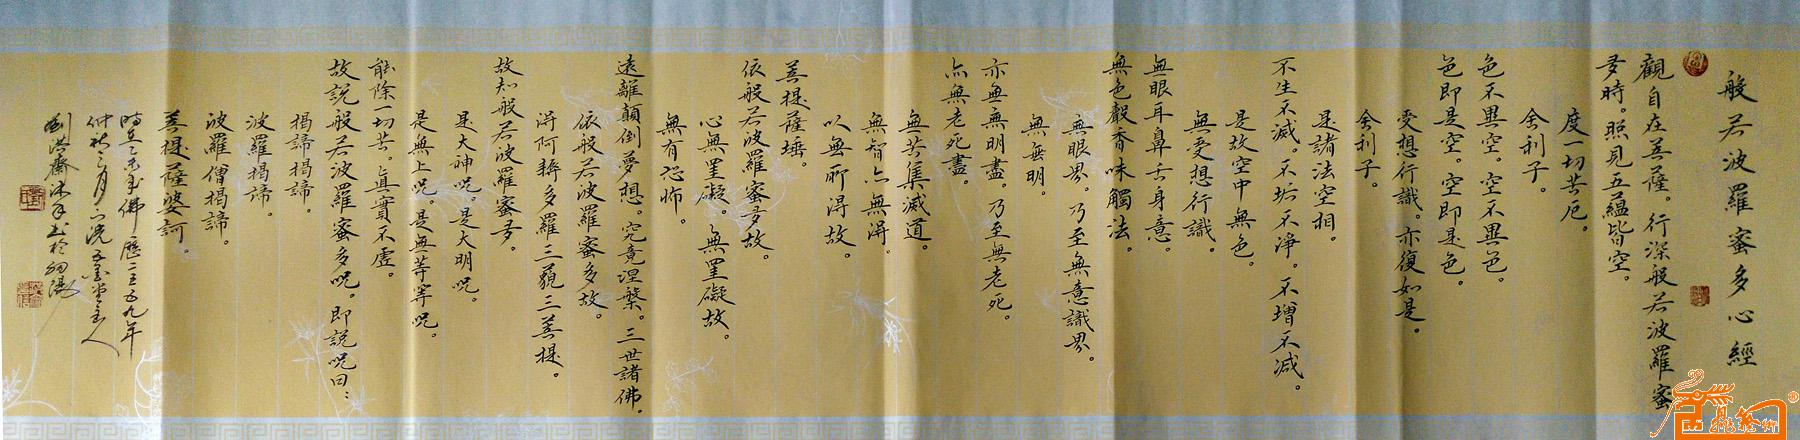 般若波羅蜜多心經
觀自在菩薩。行深般若波羅蜜
多時。照見五蘊皆空。
度一切苦厄。
舍利子。
色不異空。空不異色。
色即是空。空即是色。
受想行識。亦復如是。
舍利子。
是諸法空相。
不生不滅。不垢不淨。不增不減。
是故空中無色。
無受想行識。
無眼耳鼻舌身意。
無色聲香味觸法。
無眼界。乃至無意識界。
無無明。
亦無無明盡。乃至無老死。
亦無老死盡。
無苦集滅道。
無智亦無得。
以無所得故。
菩提薩埵。
依般若波羅蜜多故。
心無罣礙。無罣礙故。
無有恐怖。
遠離顛倒夢想。究竟涅槃。三世諸佛。
依般若波羅蜜多故。
得阿耨多羅三藐三菩提。
故知般若波羅蜜多。
是大神呪。是大明呪。
是無上呪。是無等等呪。
能除一切苦。真實不虛。
故說般若波羅蜜多呪。即說呪曰：
揭諦揭諦。
波羅揭諦。
波羅僧揭諦。
菩提薩婆訶。
佛歷二五五九年
主人
劉洪